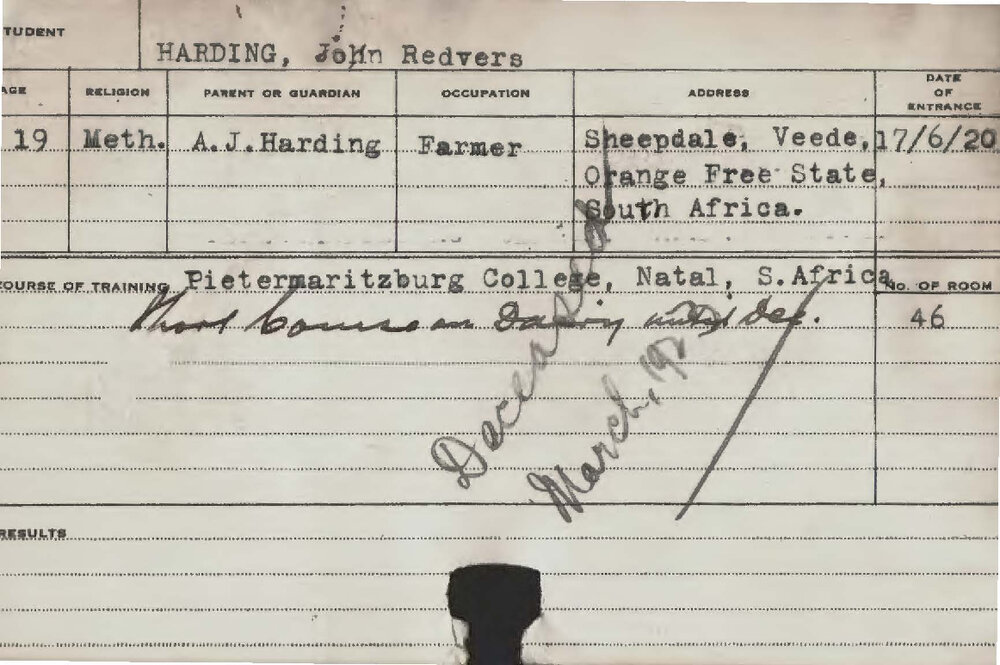 TUDENT
HARDING, John Redvers
AGE RELIGION PARENT OR GUARDIAN OCCUPATION ADDRESS DATE OF ENTRANCE
19 Meth. A.J.Harding Farmer Sheepdale, Veede, 17/6/20
Orange Free State,
South Africa.
COURSE OF TRAINING Pietermaritzburg College, Natal, S.Africa
No. OF ROOM
Short Course on Dairy until Dec. 46
Deceased
March, 192
RESULTS